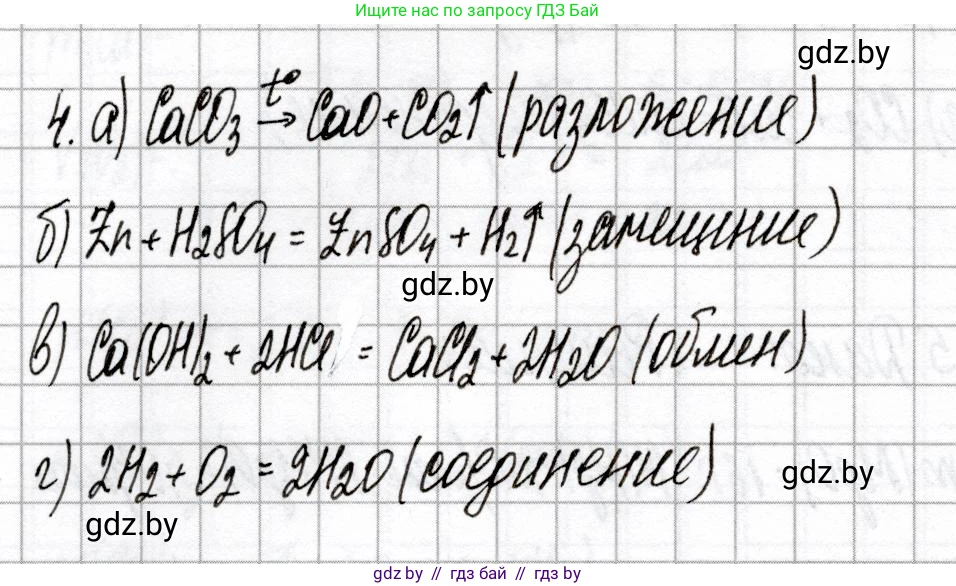 Ищите нас по запросу ГДЗ Бай
gdz.by
4. а) CaCO₃ t°→ CaO + CO₂↑ (разложение)
б) Zn + H₂SO₄ = ZnSO₄ + H₂↑ (замещение)
gdz.by
в) Ca(OH)₂ + 2HCl = CaCl₂ + 2H₂O (обмен)
г) 2H₂ + O₂ = 2H₂O (соединение)
gdz.by
gdz.by
gdz.by // гдз бай // гдз by